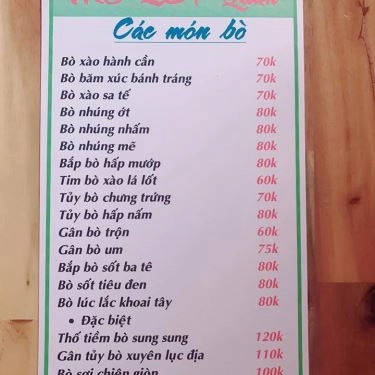 Các món bò
Bò xào hành cần 70k
Bò băm xúc bánh tráng 70k
Bò xào sa tế 70k
Bò nhúng ớt 80k
Bò nhúng nhấm 80k
Bò nhúng mẽ 80k
Bắp bò hấp mướp 80k
Tim bò xào lá lốt 60k
Tủy bò chưng trứng 70k
Tủy bò hấp nấm 80k
Gân bò trộn 60k
Gân bò um 75k
Bắp bò sốt ba tê 80k
Bò sốt tiêu đen 80k
Bò lúc lắc khoai tây 80k
• Đặc biệt
Thố tiềm bò sung sung 120k
Gân tủy bò xuyên lục địa 110k
Bò sợi chiên giòn 100k